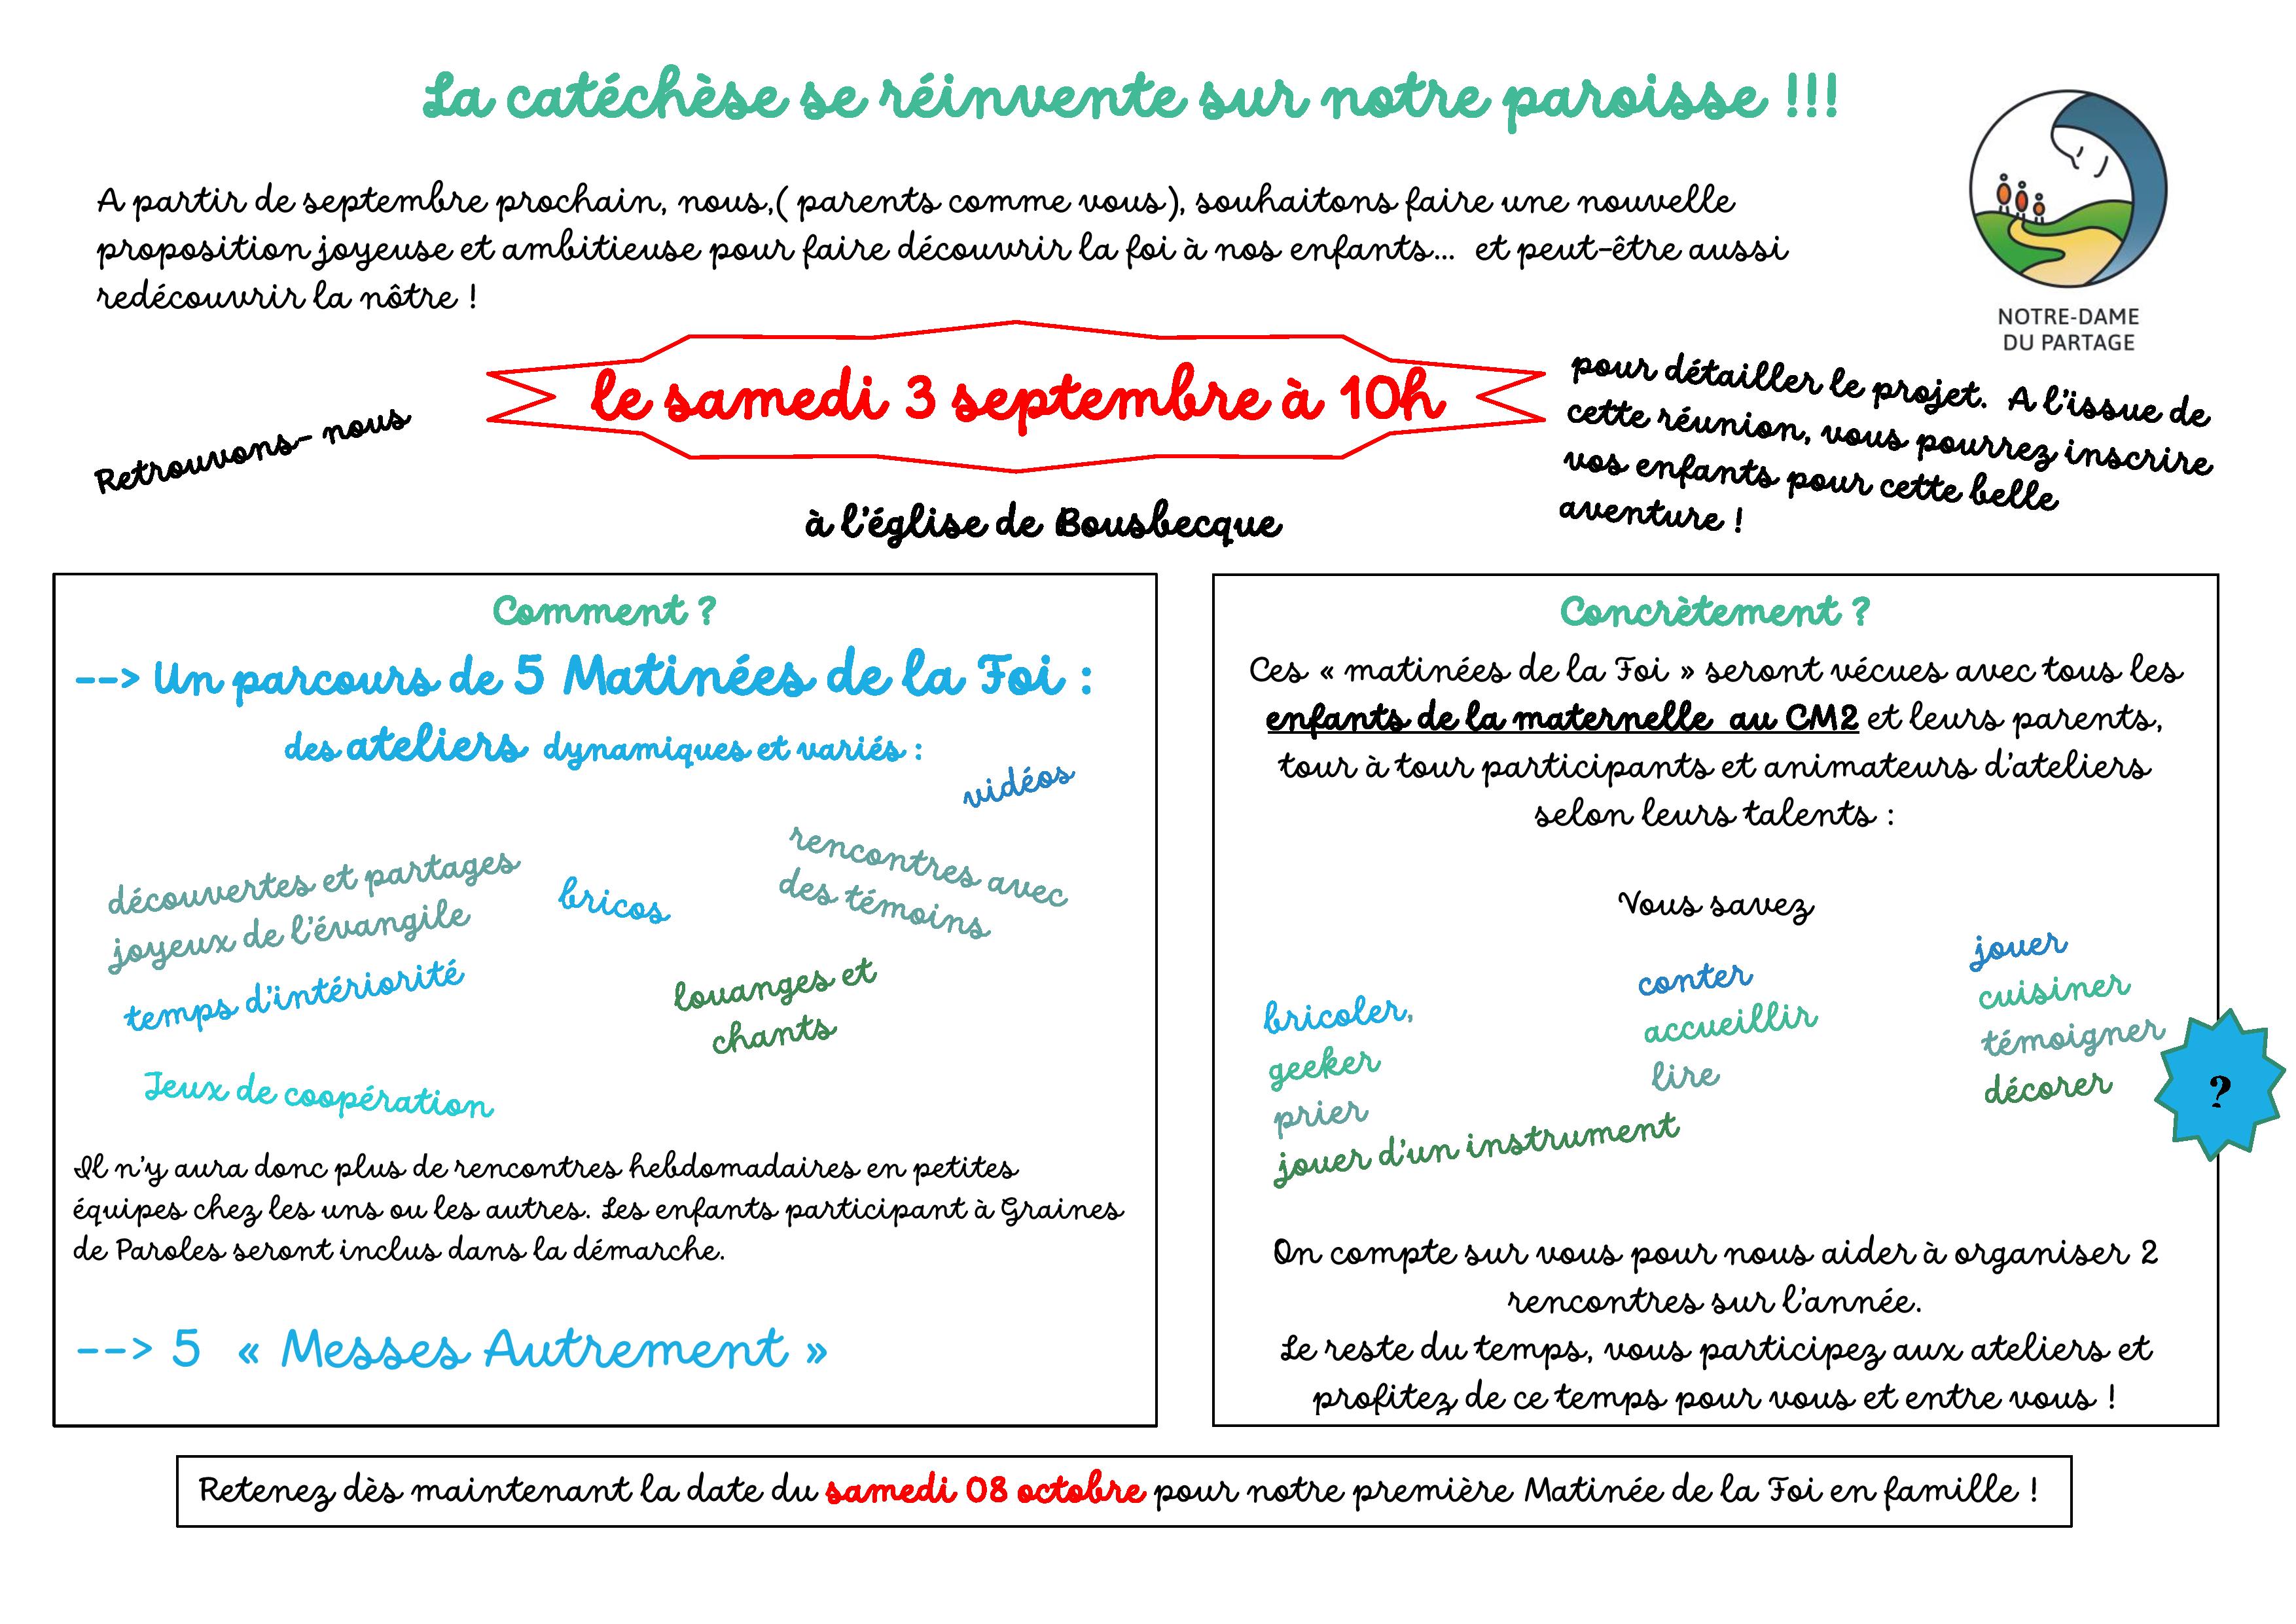 La catéchèse se réinvente sur notre paroisse !!!
A partir de septembre prochain, nous,( parents comme vous), souhaitons faire une nouvelle
proposition joyeuse et ambitieuse pour faire découvrir la foi à nos enfants... et peut-être aussi
redécouvrir la nôtre !
NOTRE-DAME
DU PARTAGE
Retrouvons- nous
le samedi 3 septembre à 10h
à l'église de Bousbecque
pour détailler le projet. A l'issue de
cette réunion, vous pourrez inscrire
vos enfants pour cette belle
aventure !
Comment ?
--> Un parcours de 5 Matinées de la Foi :
des ateliers dynamiques et variés :
vidéos
découvertes et partages
joyeux de l'évangile
bricos
rencontres avec
des témoins
temps d'intériorité
louanges et
chants
Jeux de coopération
Il n'y aura donc plus de rencontres hebdomadaires en petites
équipes chez les uns ou les autres. Les enfants participant à Graines
de Paroles seront inclus dans la démarche.
--> 5 « Messes Autrement »
Concrètement ?
Ces « matinées de la Foi » seront vécues avec tous les
enfants de la maternelle au CM2 et leurs parents,
tour à tour participants et animateurs d'ateliers
selon leurs talents :
Vous savez
bricoler,
geeker
prier
jouer d'un instrument
conter
accueillir
lire
jouer
cuisiner
témoigner
décorer
?
On compte sur vous pour nous aider à organiser 2
rencontres sur l'année.
Le reste du temps, vous participez aux ateliers et
profitez de ce temps pour vous et entre vous !
Retenez dès maintenant la date du samedi 08 octobre pour notre première Matinée de la Foi en famille !